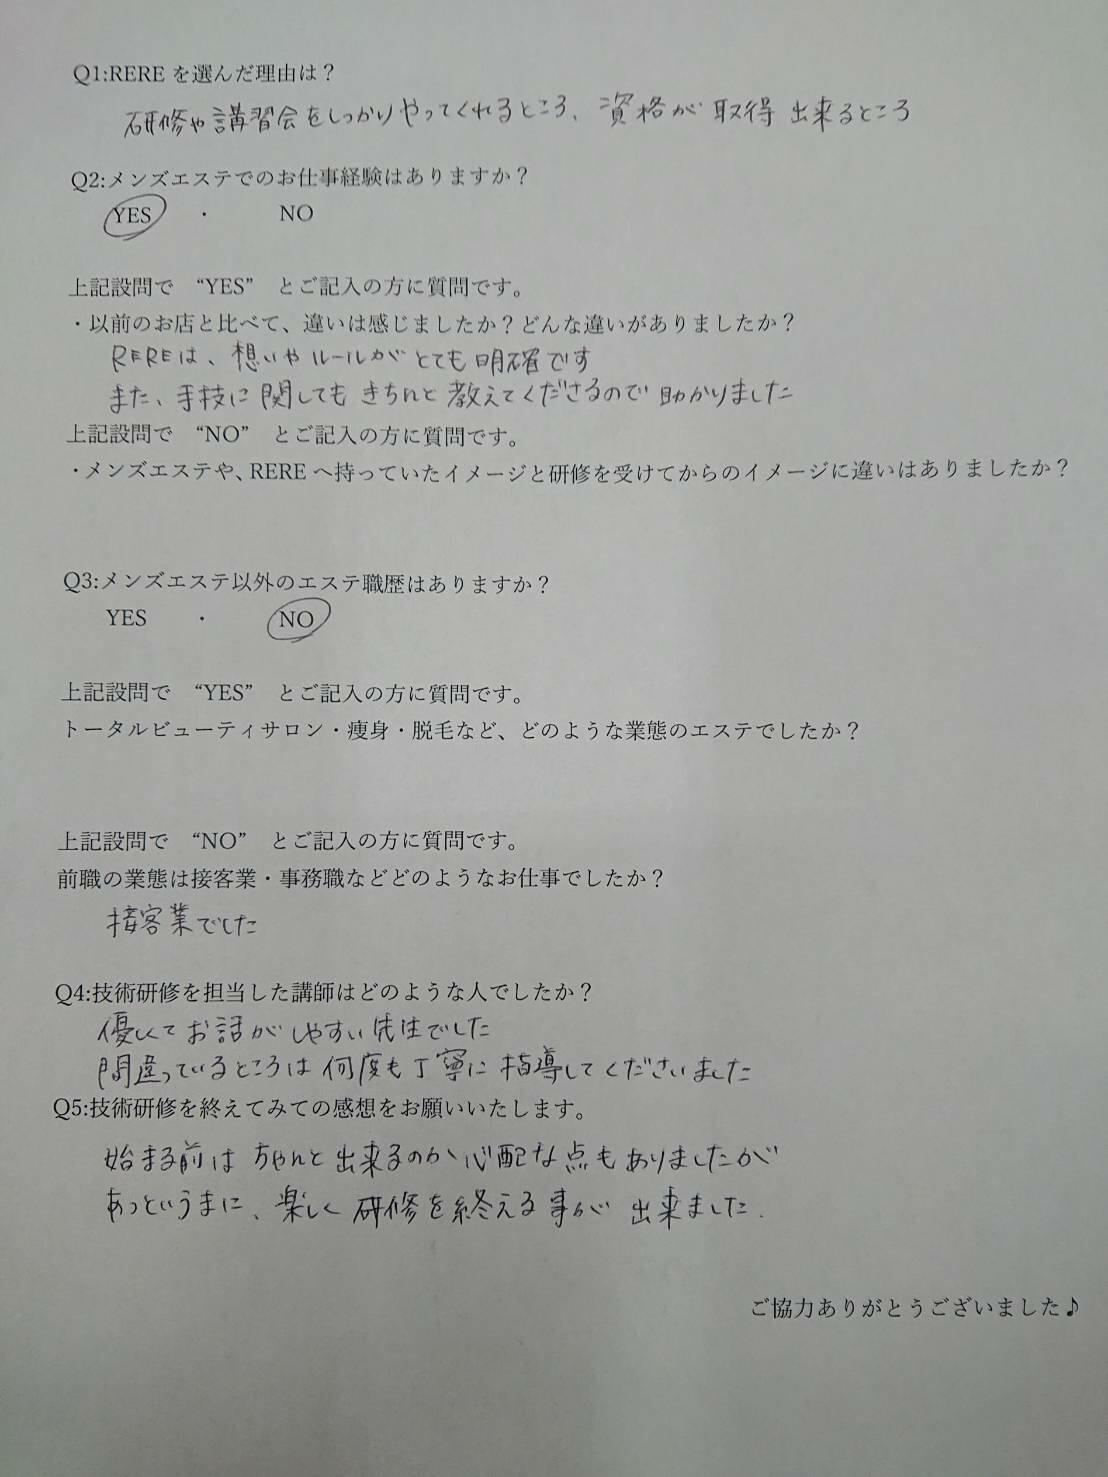 Q1:RERE を選んだ理由は？
研修や講習会をしっかりやってくれるところ、資格が取得出来るところ
Q2:メンズエステでのお仕事経験はありますか？
YES ・ NO
上記設問で “YES” とご記入の方に質問です。
・以前のお店と比べて、違いは感じましたか？どんな違いがありましたか？
REREは、想いやルールがとても明確です
また、手技に関してもきちんと教えてくださるので助かりました
上記設問で “NO” とご記入の方に質問です。
・メンズエステや、RERE へ持っていたイメージと研修を受けてからのイメージに違いはありましたか？
Q3:メンズエステ以外のエステ職歴はありますか？
YES ・ NO
上記設問で “YES” とご記入の方に質問です。
トータルビューティサロン・痩身・脱毛など、どのような業態のエステでしたか？
上記設問で “NO” とご記入の方に質問です。
前職の業態は接客業・事務職などどのようなお仕事でしたか？
接客業でした
Q4:技術研修を担当した講師はどのような人でしたか？
優しくてお話がしやすい先生でした
間違っているところは何度も丁寧に指導してくださいました
Q5:技術研修を終えてみての感想をお願いいたします。
始まる前はちゃんと出来るのか心配な点もありましたが
あっというまに、楽しく研修を終える事が出来ました.
ご協力ありがとうございました♪